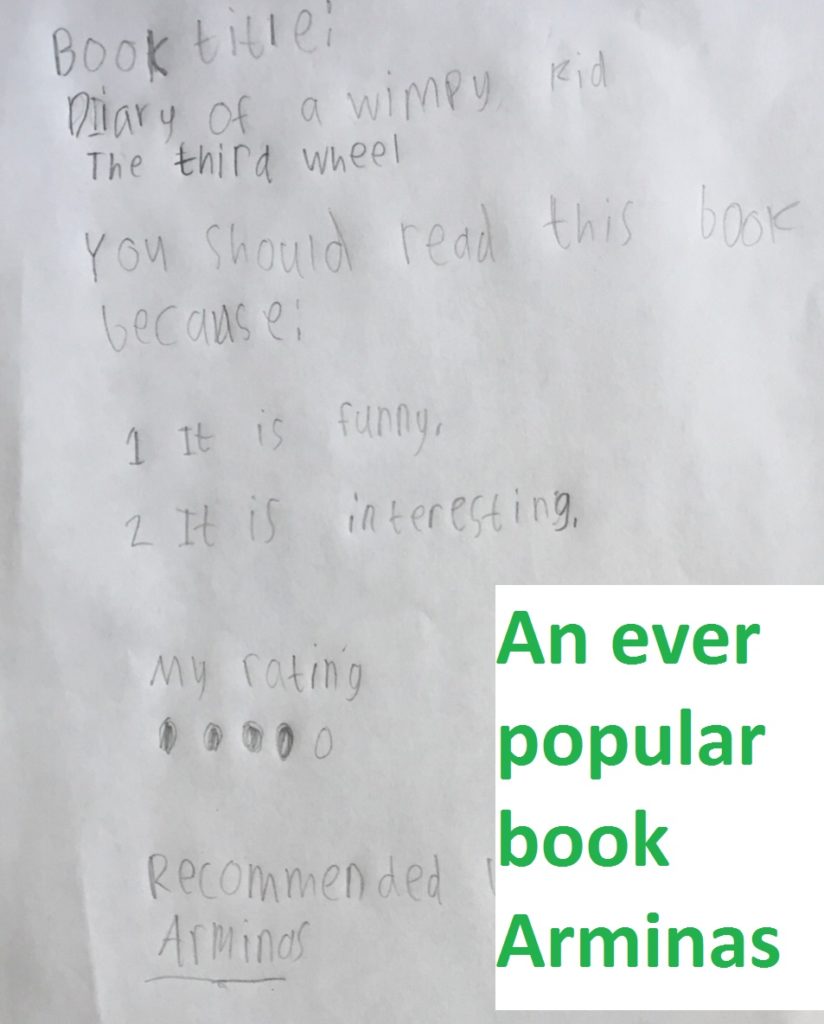 Book title:
Diary of a wimpy kid
The third wheel
You should read this book
because:
1 It is funny.
2 It is interesting.
My rating
Recommended
Arminas
An ever
popular
book
Arminas